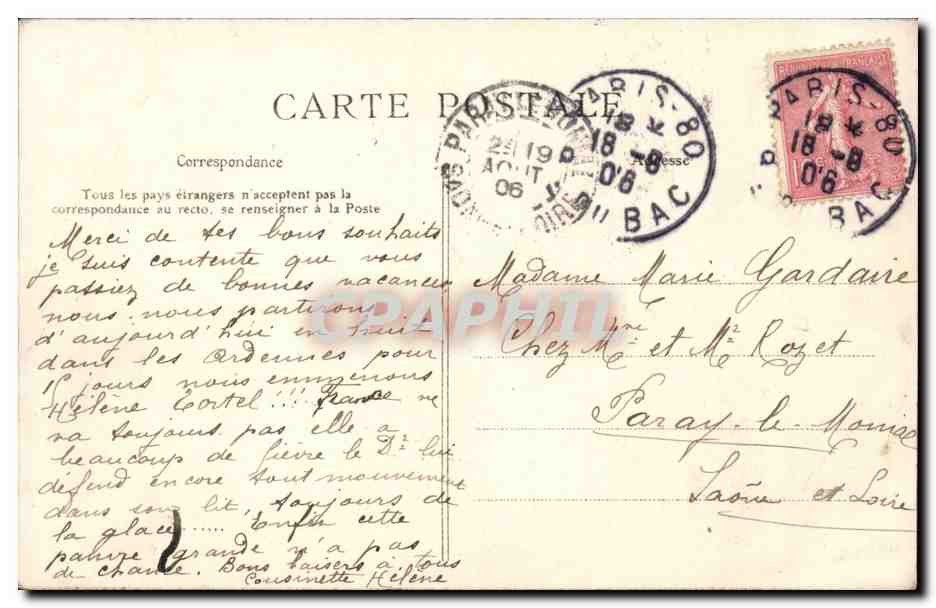 CARTE POSTALE
Correspondance
Adresse
Tous les pays étrangers n'acceptent pas la
correspondance au recto, se renseigner à la Poste
PARIS-80
18-8
06
BAC
2E 19
AOUT
06
PARIS-80
18-8
06
BAC
Merci de tes bons souhaits
je suis contente que vous
passiez de bonnes vacances
nous. nous partirons
d'aujourd'hui en huit
dans les Ardennes pour
15 jours nous emmenons
Hélène Tortel !!! France ne
va toujours pas elle a
beaucoup de fièvre le Dr lui
défend encore tout mouvement
dans son lit, toujours de
la glace ...... Enfin cette
pauvre grande n'a pas
de chance. Bons baisers à tous
Cousinette Hélène
Madame Marie Gardaire
Chez Mme et Mr Rozet
Paray-le-Monial
Saône et Loire
CPAPHIL